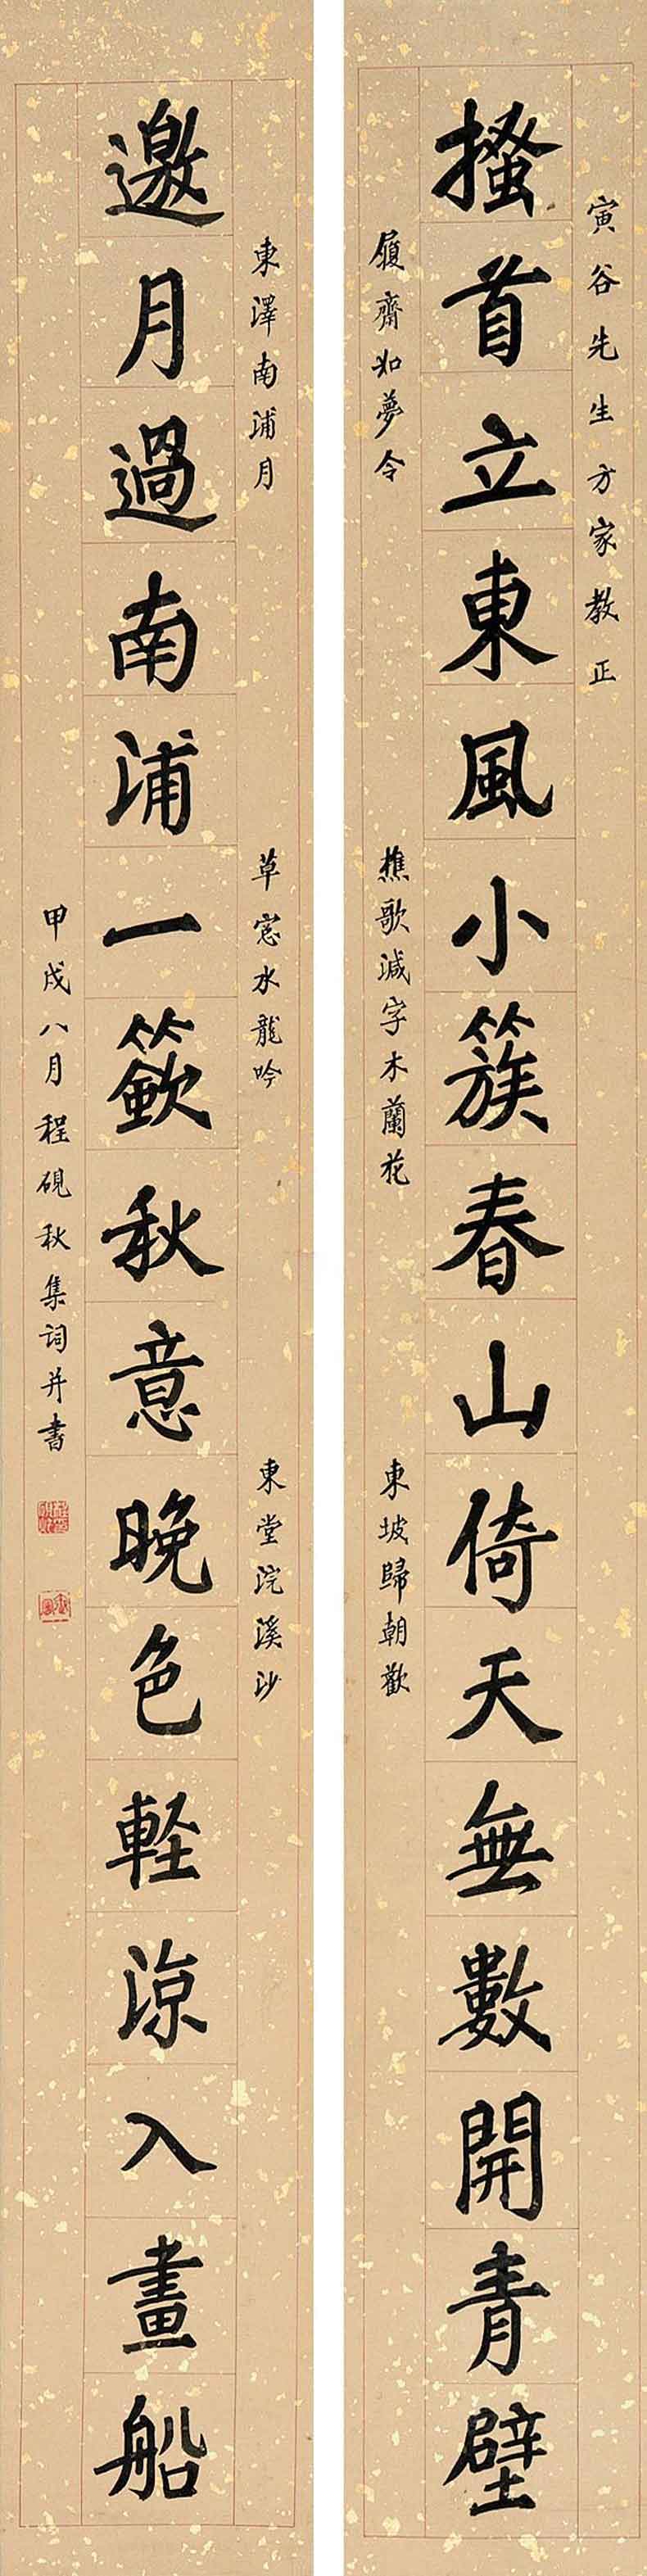 寅谷先生方家教正
搔首立東風小簇春山倚天無數開青壁
履齋如夢令
樵歌減字木蘭花
東坡歸朝歡
東澤南浦月
草窓水龍吟
東堂浣溪沙
邀月過南浦一籢秋意晚色輕涼入畫船
甲戌八月程硯秋集詞并書